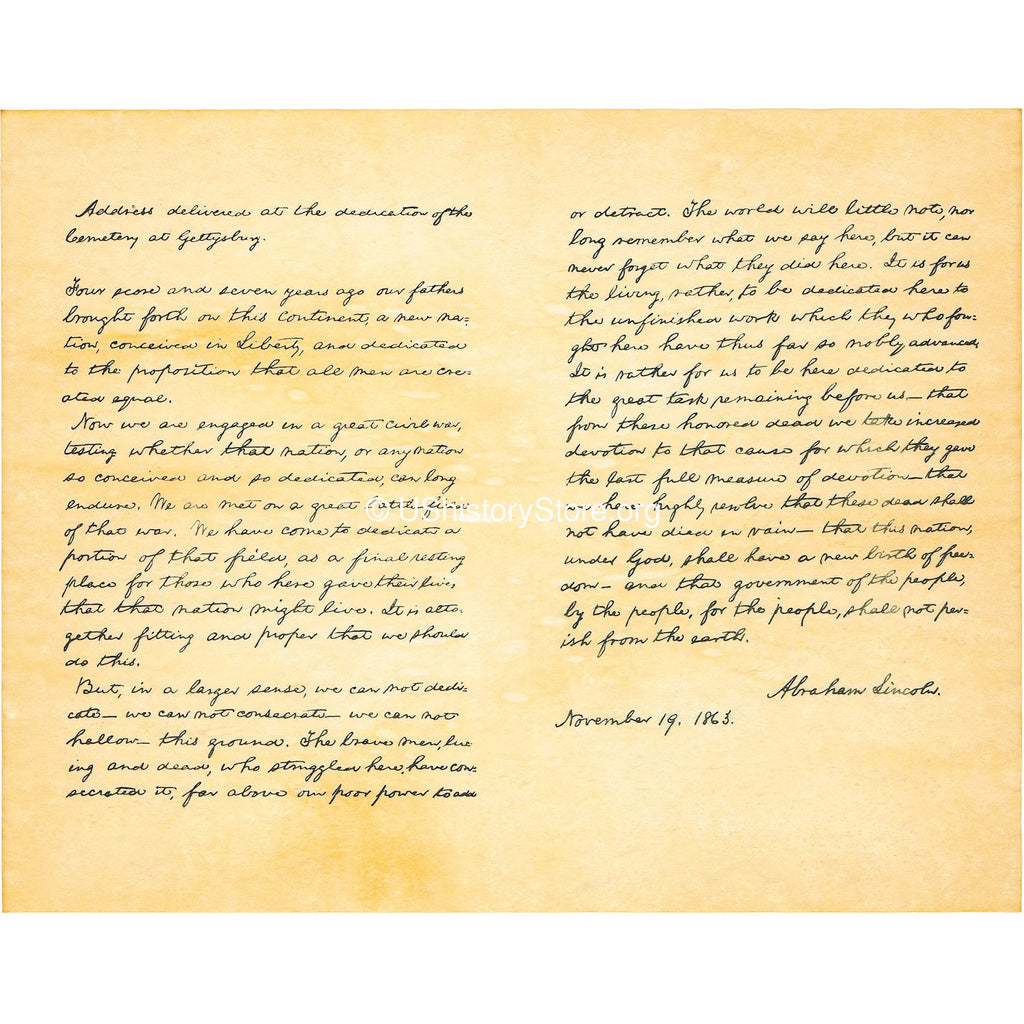 Address delivered at the dedication of the
Cemetery at Gettysburg.
Four score and seven years ago our fathers
brought forth on this continent, a new na=
tion, conceived in Liberty, and dedicated
to the proposition that all men are cre=
ated equal.
Now we are engaged in a great civil war,
testing whether that nation, or any nation
so conceived and so dedicated, can long
endure. We are met on a great battle-field
of that war. We have come to dedicate a
portion of that field, as a final resting
place for those who here gave their lives
that that nation might live. It is alto=
gether fitting and proper that we should
do this.
But, in a larger sense, we can not dedi=
cate— we can not consecrate— we can not
hallow— this ground. The brave men, liv=
ing and dead, who struggled here, have con=
secrated it, far above our poor power to add
or detract. The world will little note, nor
long remember what we say here, but it can
never forget what they did here. It is for us
the living, rather, to be dedicated here to
the unfinished work which they who fou=
ght here have thus far so nobly advanced.
It is rather for us to be here dedicated to
the great task remaining before us— that
from these honored dead we take increased
devotion to that cause for which they gave
the last full measure of devotion— that
we here highly resolve that these dead shall
not have died in vain— that this nation,
under God, shall have a new birth of free=
dom— and that government of the people,
by the people, for the people, shall not per=
ish from the earth.
Abraham Lincoln.
November 19. 1863.
© UShistoryStore.org